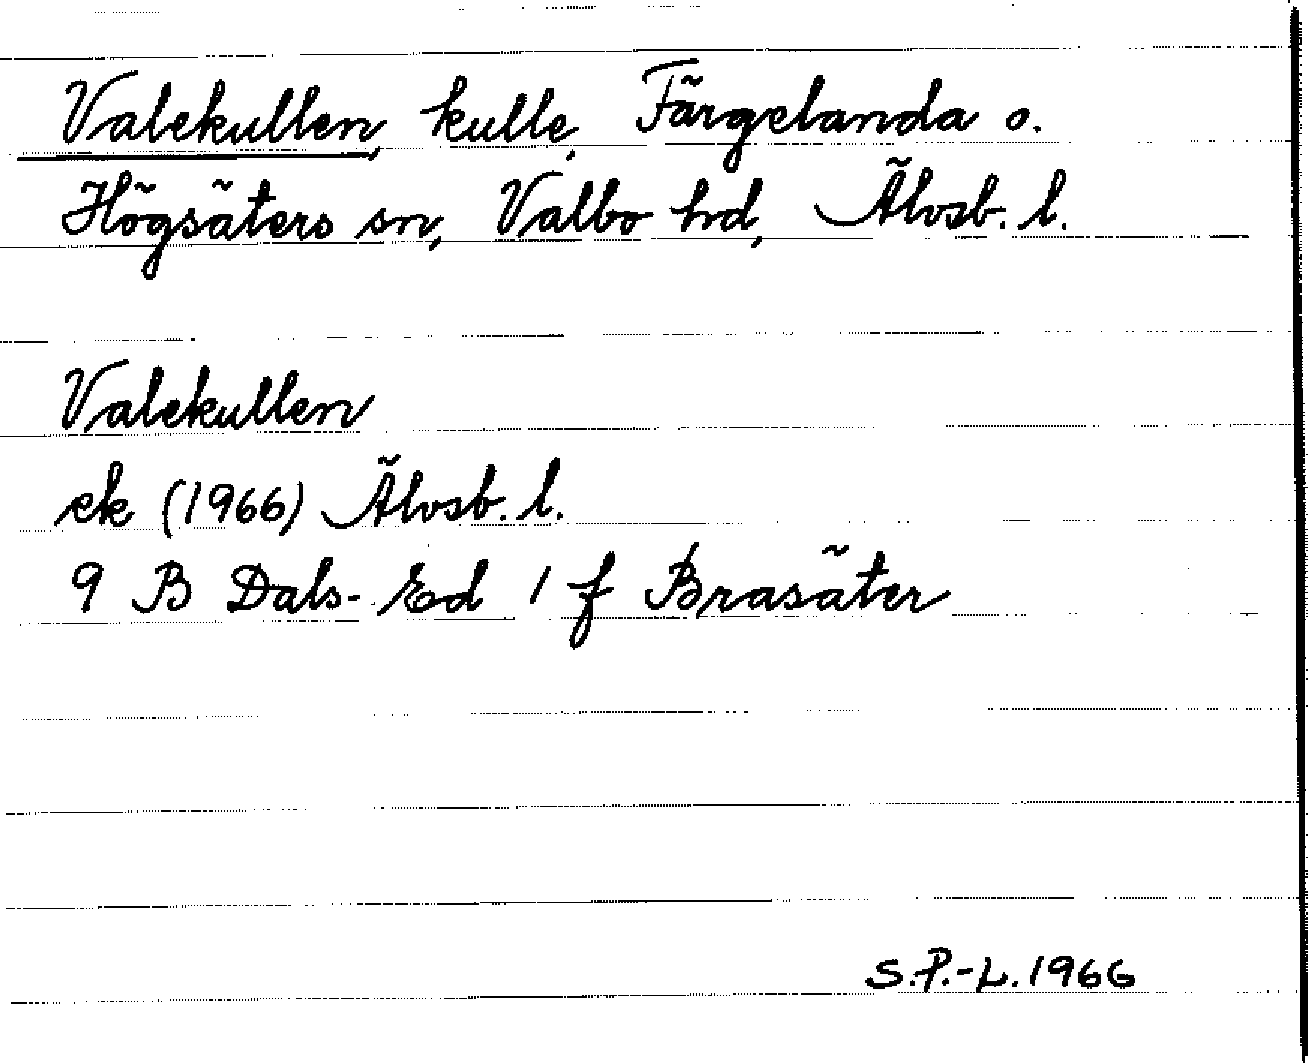 Valekullen, kulle, Färgelanda o.
Högsäters sn, Valbo hd, Älvsb. l.
Valekullen
ek (1966) Älvsb. l.
9 B Dals-Ed 1 f Brasäter
S.P.-L. 1966